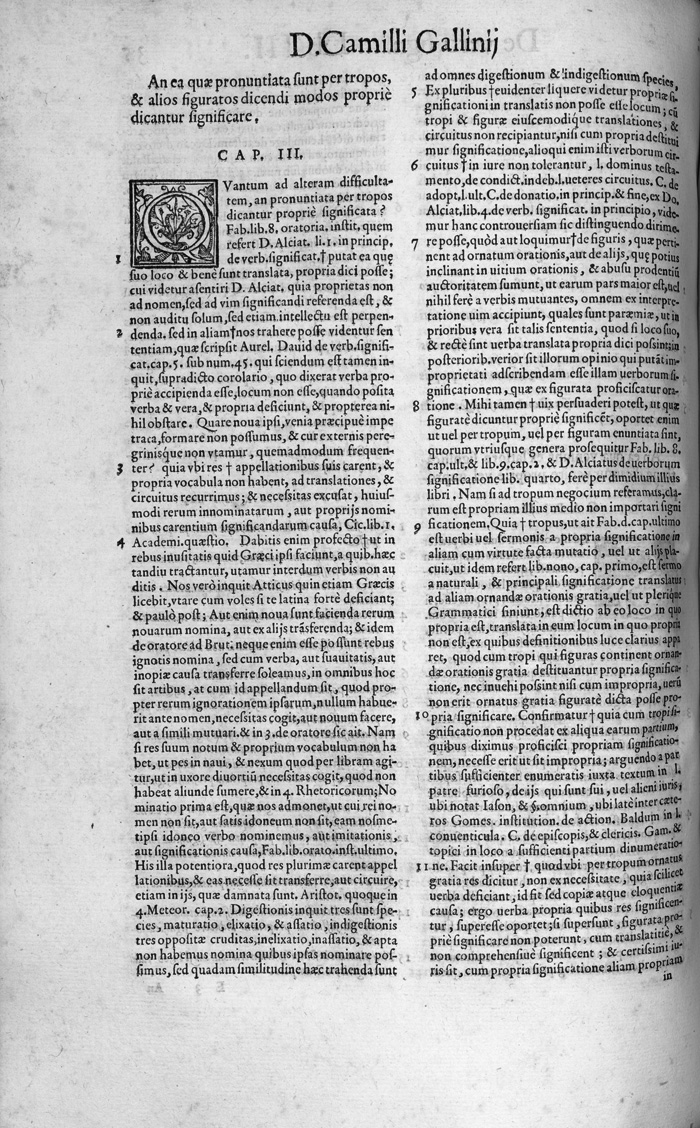 D. Camilli Gallinij
An ea quæ pronuntiata sunt per tropos,
& alios figuratos dicendi modos propriè
dicantur significare.
CAP. III.
QVantum ad alteram difficulta-
tem, an pronuntiata per tropos
dicantur propriè significata?
Fab. lib. 8. oratoria. instit, quem
refert D. Alciat. li. 1. in princip.
1 de verb. significat. † putat ea quę
suo loco & benè sunt translata, propria dici posse;
cui videtur asentiri D. Alciat. quia proprietas non
ad nomen, sed ad vim significandi referenda est, &
non auditu solum, sed etiam. intellectu est perpen-
2 denda. sed in aliam†nos trahere posse videntur sen
tentiam, quæ scripsit Aurel. Dauid de verb. signifi-
cat. cap. 5. sub num. 45. qui sciendum est tamen in-
quit, supradicto corolario, quo dixerat verba pro-
priè accipienda esse, locum non esse, quando posita
verba & vera, & propria deficiunt, & propterea ni-
hil obstare. Quare noua ipsi, venia præcipuè impe
traca, formare non possumus, & cur externis pere-
grinisque non vtamur, quemadmodum frequen-
3 ter? quia vbi res † appellationibus suis carent, &
propria vocabula non habent, ad translationes, &
circuitus recurrimus; & necessitas excusat, huius-
modi rerum innominatarum, aut proprijs nomi-
nibus carentium significandarum causa, Cic. lib. 1.
4 Academi. quæstio. Dabitis enim profecto†ut in
rebus inusitatis quid Græci ipsi faciunt, a quib. hæc
tandiu tractantur, utamur interdum verbis non au
ditis. Nos verò inquit Atticus quin etiam Græcis
licebit, vtare cum voles si te latina fortè deficiant;
& paulò post; Aut enim noua sunt facienda rerum
nouarum nomina, aut ex alijs trāsferenda; & idem
de oratore ad Brut. neque enim esse possunt rebus
ignotis nomina, sed cum verba, aut suauitatis, aut
inopiæ causa transferre soleamus, in omnibus hoc
sit artibus, at cum id appellandum sit, quod pro-
pter rerum ignorationem ipsarum, nullum habue-
rit ante nomen, necessitas cogit, aut nouum facere,
aut a simili mutuari. & in 3. de oratore sic ait. Nam
si res suum notum & proprium vocabulum non ha
bet, ut pes in naui, & nexum quod per libram agi-
tur, ut in uxore diuortiū necessitas cogit, quod non
habeat aliunde sumere, & in 4. Rhetoricorum; No
minatio prima est, quæ nos admonet, ut cui rei no-
men non sit, aut satis idoneum non sit, eam nosme-
tipsi idoneo verbo nominemus, aut imitationis,
aut significationis causa, Fab. lib. orato. inst. ultimo.
His illa potentiora, quod res plurimæ carent appel
lationibus, & eas necesse sit transferre, aut circuire,
etiam in ijs, quæ damnata sunt. Aristot. quoque in
4. Meteor. cap. 2. Digestionis inquit tres sunt spe-
cies, maturatio, elixatio, & assatio, indigestionis
tres oppositæ cruditas, inelixatio, inassatio, & apta
non habemus nomina quibus ipsas nominare pos-
simus, sed quadam similitudine hæc trahenda sunt
ad omnes digestionum & indigestionum species,
5 Ex pluribus †euidenter liquere videtur propriæ si-
gnificationi in translatis non posse esse locum; cū
tropi & figuræ eiuscemodique translationes, &
circuitus non recipiantur, nisi cum propria destitui
mur significatione, alioqui enim isti verborum cir-
6 cuitus † in iure non tolerantur, l. dominus testa-
mento, de condict. indeb. l. ueteres circuitus. C. de
adopt. l. ult. C. de donatio. in princip. & fine, ex Do.
Alciat. lib. 4. de verb. significat. in principio, vide-
mur hanc controuersiam sic distinguendo dirime-
7 re posse, quòd aut loquimur†de figuris, quæ perti-
nent ad ornatum orationis, aut de alijs, quę potius
inclinant in uitium orationis, & abusu prodentiū
auctoritatem sumunt, ut earum pars maior est, uel
nihil ferè a verbis mutuantes, omnem ex interpre-
tatione uim accipiunt, quales sunt parœmiæ, ut in
prioribus vera sit talis sententia, quod si loco suo,
& rectè sint uerba translata propria dici possint; in
posteriorib. verior sit illorum opinio qui putāt im-
proprietati adscribendam esse illam uerborum si-
gnificationem, quæ ex figurata proficiscatur ora-
8 tione. Mihi tamen † uix persuaderi potest, ut quæ
figuratè dicuntur propriè significēt, oportet enim
ut uel per tropum, uel per figuram enuntiata sint,
quorum vtriusque genera prosequitur Fab. lib. 8.
cap. ult. & lib. 9. cap. 2. & D. Alciatus de uerborum
significatione lib. quarto, ferè per dimidium illius
libri. Nam si ad tropum negocium referamus, cla-
rum est propriam illius medio non importari signi
9 ficationem. Quia † tropus, ut ait Fab. d. cap. ultimo
est uerbi uel sermonis a propria significatione in
aliam cum virtute facta mutatio, uel ut alijs pla-
cuit, ut idem refert lib. nono, cap. primo, est sermo
a naturali, & principali significatione translatus
ad aliam ornandæ orationis gratia, uel ut plerique
Grammatici finiunt, est dictio ab eo loco in quo
propria est, translata in eum locum in quo propria
non est, ex quibus definitionibus luce clarius appa
ret, quod cum tropi qui figuras continent ornan-
dæ orationis gratia destituantur propria significa-
tione, nec inuehi possint nisi cum impropria, uerū
non erit ornatus gratia figuratè dicta posse pro-
10 pria significare. Confirmatur † quia cum tropi si-
gnificatio non procedat ex aliqua earum partium,
quibus diximus proficisci propriam significatio-
nem, necesse erit ut sit impropria; arguendo a par
tibus sufficienter enumeratis iuxta textum in l.
patre furioso, de ijs qui sunt sui, uel alieni iuris,
ubi notat Iason, & §. omnium, ubi latè inter cæte-
ros Gomes. institution. de action. Baldum in l.
conuenticula. C. de episcopis, & clericis. Gam. &
topici in loco a sufficienti partium dinumeratio-
11 ne. Facit insuper † quod vbi per tropum ornatus
gratia res dicitur, non ex necessitate, quia scilicet
uerba deficiant, id fit sed copiæ atque eloquentiæ
causa; ergo uerba propria quibus res significen-
tur, superesse oportet; si supersunt, figurata pro-
priè significare non poterunt, cum translatitiè, &
non comprehensiuè significent; & certissimi iu-
ris sit, cum propria significatione aliam propriam
in